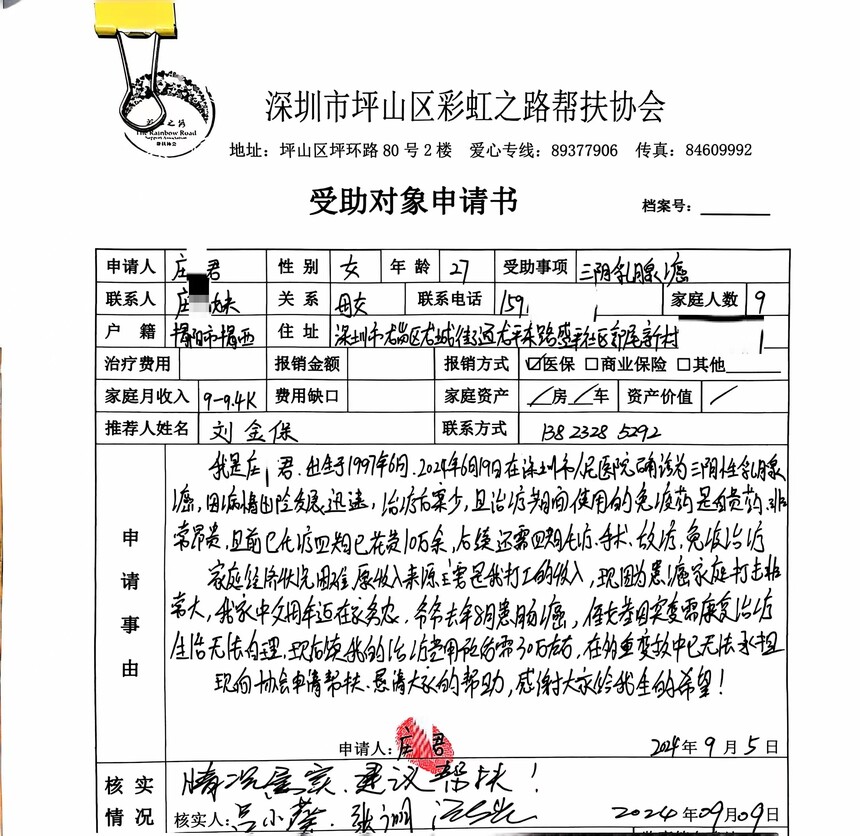 彩虹之路
The Rainbow Road
Support Association
帮扶协会
深圳市坪山区彩虹之路帮扶协会
地址：坪山区坪环路80号2楼 爱心专线：89377906 传真：84609992
受助对象申请书
档案号：
申请人 庄 君 性别 女 年龄 27 受助事项 三阴乳腺癌
联系人 庄 妹 关系 母女 联系电话 159 家庭人数 9
户籍 揭阳市揭西 住址 深圳市龙岗区龙城街道太平东路盛平社区 新村
治疗费用 报销金额 报销方式 ☑医保 □商业保险 □其他
家庭月收入 9-9.4K 费用缺口 家庭资产 /房/车 资产价值 /
推荐人姓名 刘金保 联系方式 13823285292
申请事由
我是庄 君.出生于1997年6月.2024年6月19日在深圳市人民医院确诊为三阴性乳腺
癌,因病情凶险发展迅速,治疗方案少,且治疗期间使用的免疫药是自费药.非
常昂贵,目前已化疗四期已花费10万余,后续还需四期化疗.手术、放疗、免疫治疗
家庭经济状况困难原收入来源主要是我打工的收入,现因为患癌家庭打击非
常大,我家中父母年迈在家务农.爷爷去年8月患肠癌, 需康复治疗
生活无法自理.现后续我的治疗费用预估需30万左右,在多重变故中已无法承担
现向协会申请帮扶.恳请大家的帮助,感谢大家给我生的希望!
申请人：庄 君 2024年9月5日
核实情况 情况属实.建议帮扶!
核实人：吕小葵. 2024年09月09日